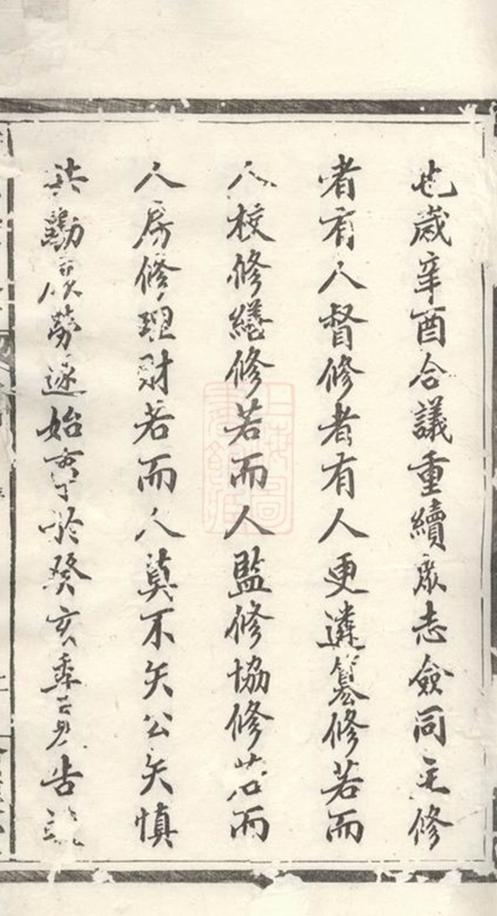 也歲辛酉合議重續眾志僉同主修
者有人督修者有人更遴纂修若而
人校修繕修若而人監修協修若而
人房修理財若而人莫不矢公矢慎
共勷厥勞遂始事於癸亥季春月告竣